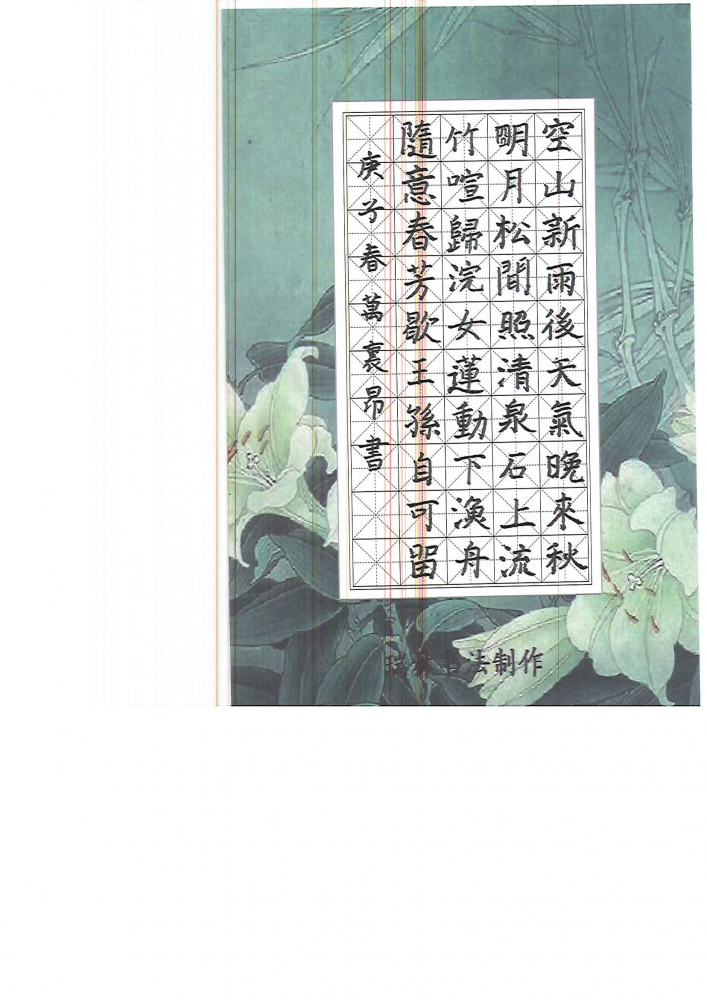 空山新雨後天氣晚來秋
明月松間照清泉石上流
竹喧歸浣女蓮動下漁舟
隨意春芳歇王孫自可留
庚子春萬裏昂書
书法制作